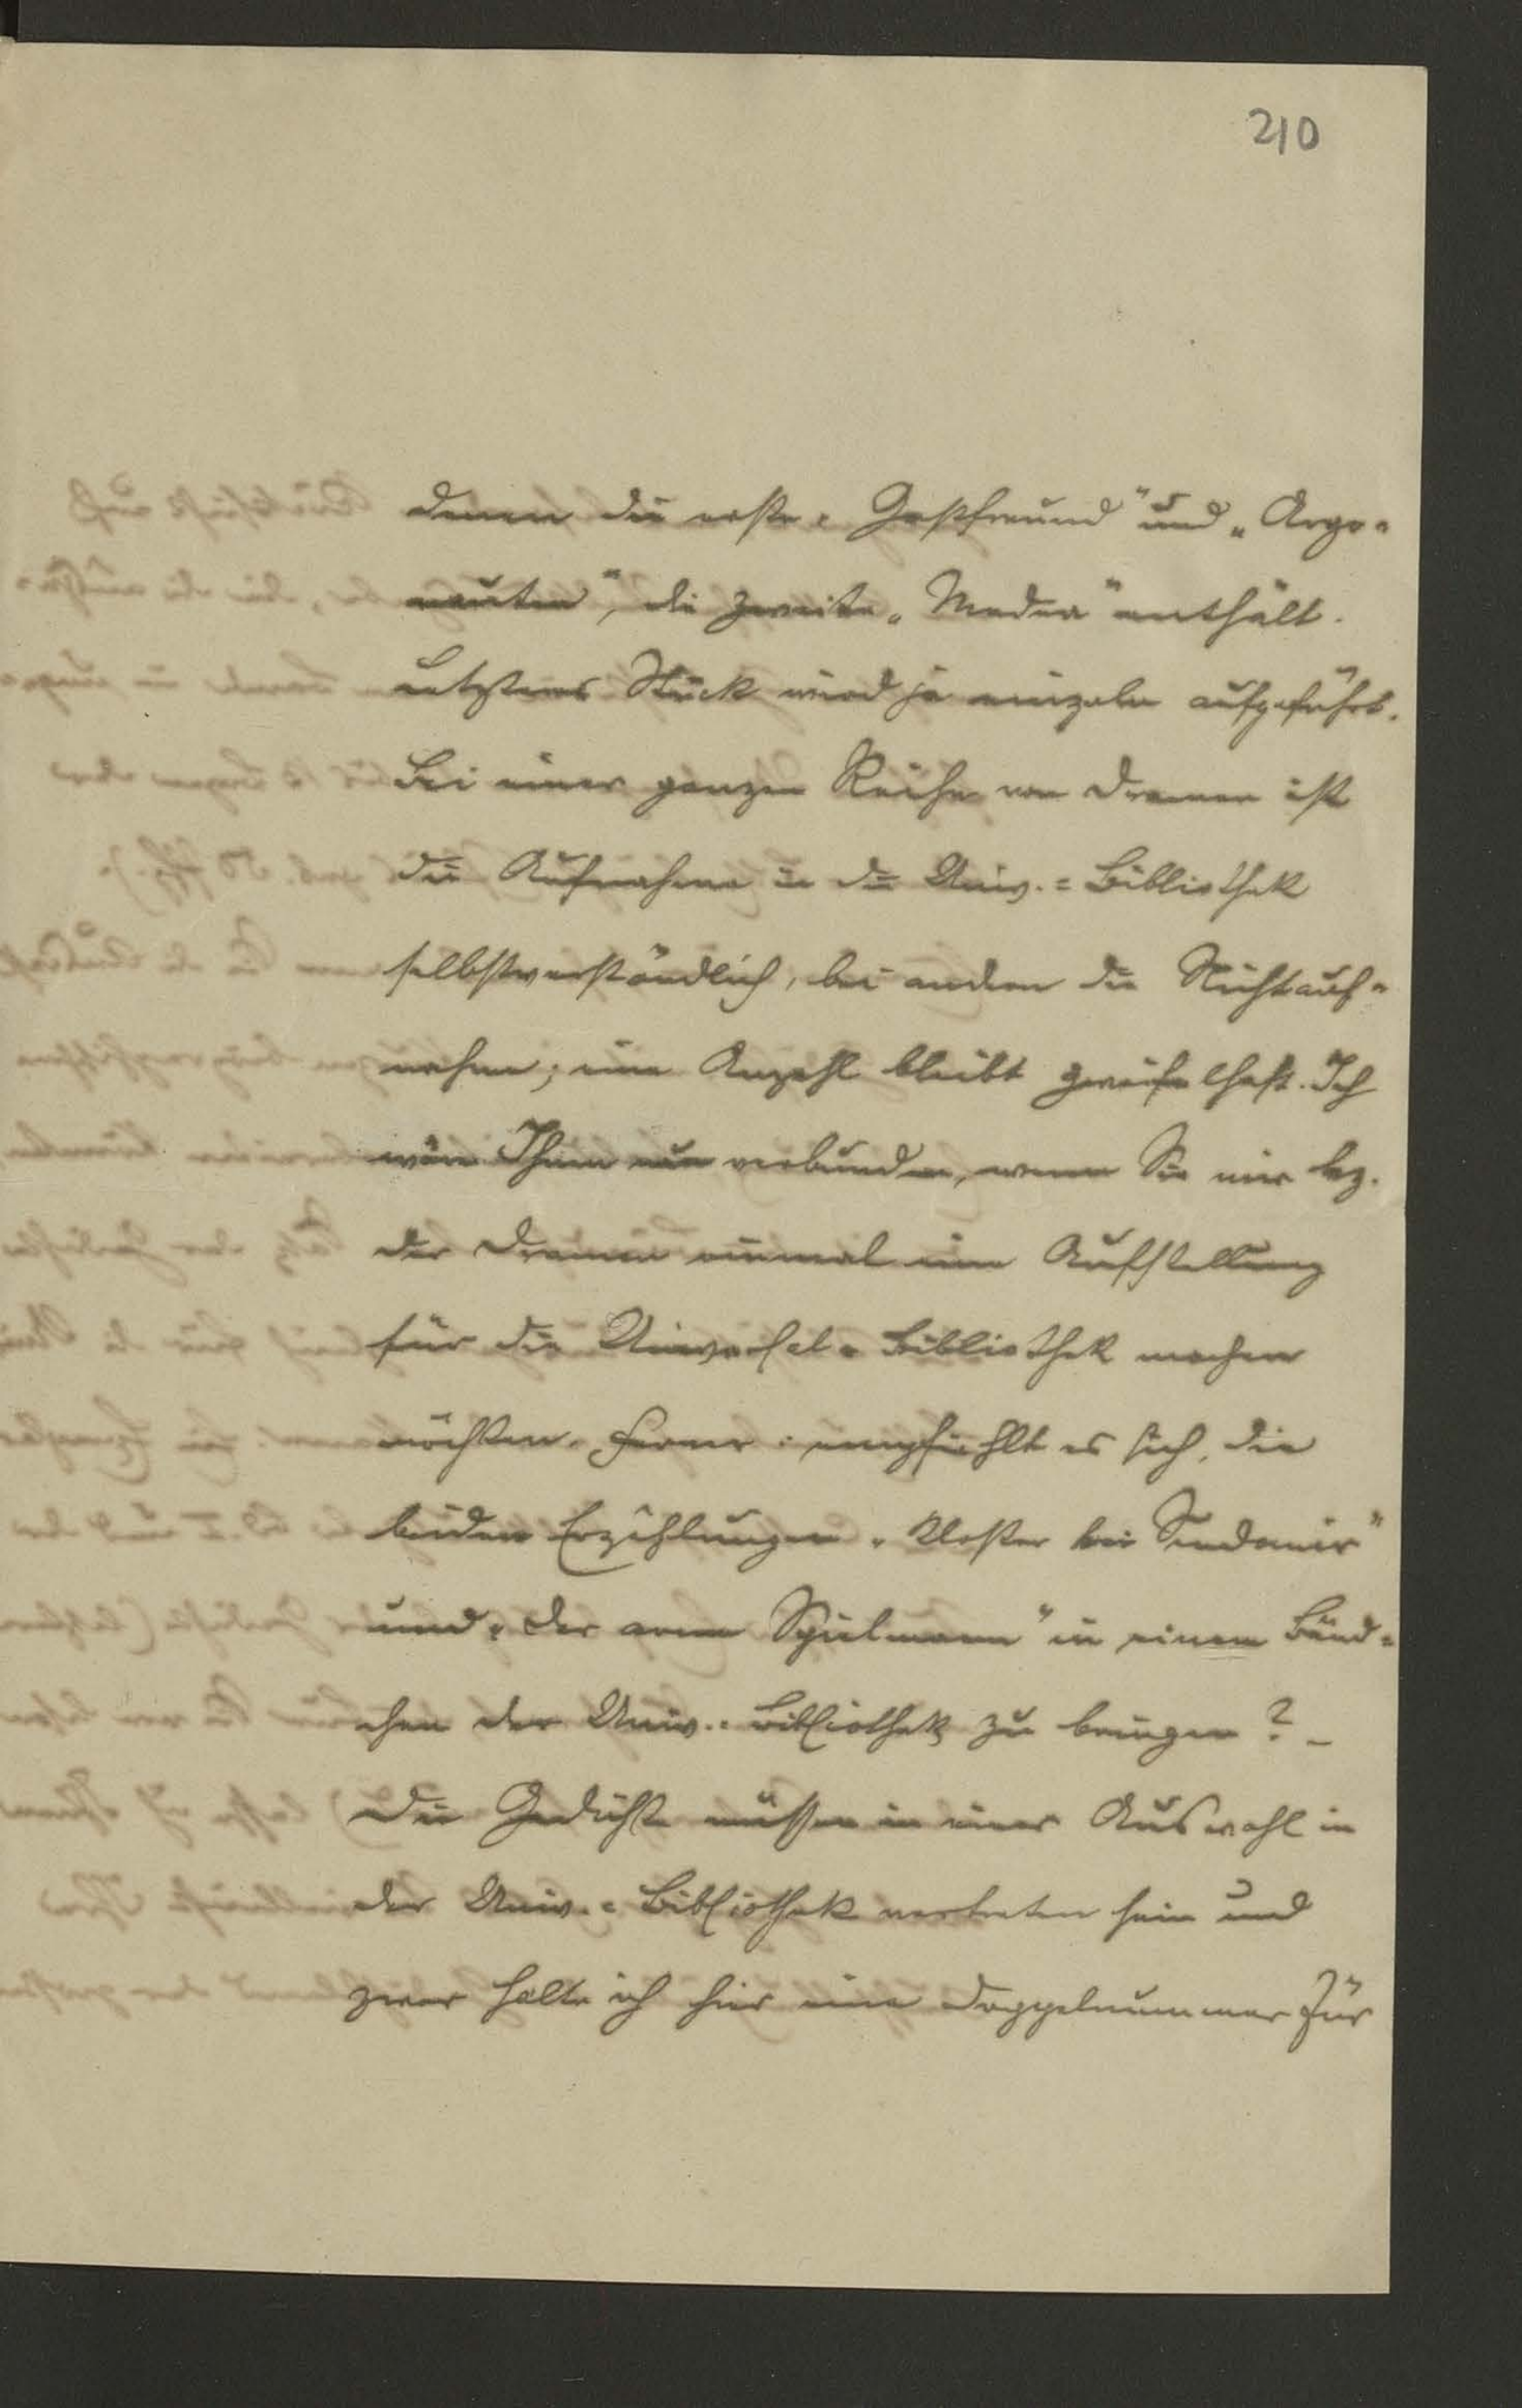 210
denen die erste „Gastfreund" und „Argo-
nauten", die zweite „Medea" enthält.
Letzteres Stück wird ja einzeln aufgeführt.
Bei einer ganzen Reihe von Dramen ist
die Aufnahme in die Univ.=Bibliothek
selbstverständlich, bei andern die Nichtauf-
nahme; eine Anzahl bleibt zweifelhaft. Ich
wäre Ihnen nun verbunden, wenn Sie mir bez.
der Dramen einmal eine Aufstellung
für die Universal-Bibliothek machen
möchten. Ferner: empfiehlt es sich, die
beiden Erzählungen „Kloster bei Sendomir"
und „Der arme Spielmann" in einem Bänd-
chen der Univ.-Bibliothek zu bringen? –
Die Gedichte müssen in einer Auswahl in
der Univ.=Bibliothek vertreten sein und
zwar halte ich hier eine Doppelnummer für